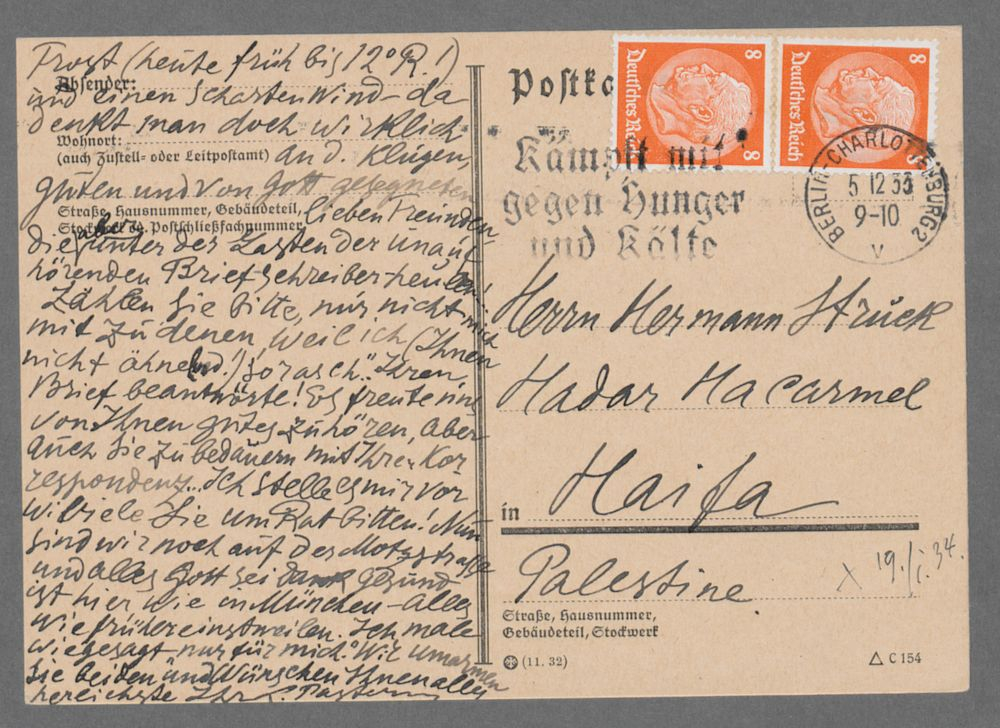 Frost (heute früh bis 12° R.!)
und einen scharfen Wind – da
denkt man doch wirklich
an d. klugen,
guten und von Gott gesegneten
lieben Freunden,
die aber unter der Lasten der unauf
hörenden Brief schreiber
Zählen Sie bitte, nur nicht mich
mit zu denen, weil ich (Ihnen
nicht ähnelnd!) so rasch Ihren
Brief beantworte! Es freute uns
von Ihnen gutes zu hören, aber
auch Sie zu bedauern mit Ihrer Kor
respondenz... Ich stelle es mir vor
wieviele Sie um Rat bitten! Nun
sind wir noch auf der Motzstrasse
und alles Gott sei dank gesund
ist hier wie in München – alles
wie früher einstweilen. Ich male
wie gesagt – nur für mich. Wir umarmen
Sie beiden und Wünschen Ihnen alles
Ihr L. Pasternak
Absender:
Wohnort:
(auch Zustell- oder Leitpostamt)
Straße, Hausnummer, Gebäudeteil,
Stockwerk od. Postschließfachnummer
Postka
Deutsches Reich 8 8
Deutsches Reich 8 8
Kämpft mit
gegen Hunger
und Kälte
BERLIN-CHARLOTTENBURG 2
5 12 33
9-10
V
Herrn Hermann Struck
Hadar Hacarmel
in Haifa
Palestine
x 19./I. 34.
Straße, Hausnummer,
Gebäudeteil, Stockwerk
(11. 32)
C 154